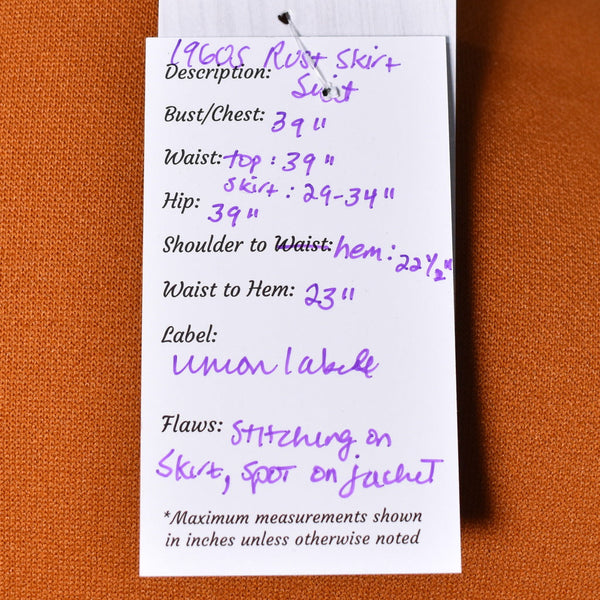 1960s Rust Skirt
Description: Suit
Bust/Chest: 39"
Waist: top: 39"
skirt: 29-34"
Hip: 39"
Shoulder to Waist: hem: 22 1/2"
Waist to Hem: 23"
Label:
union label
Flaws: Stitching on
Skirt, spot on jacket
*Maximum measurements shown
in inches unless otherwise noted